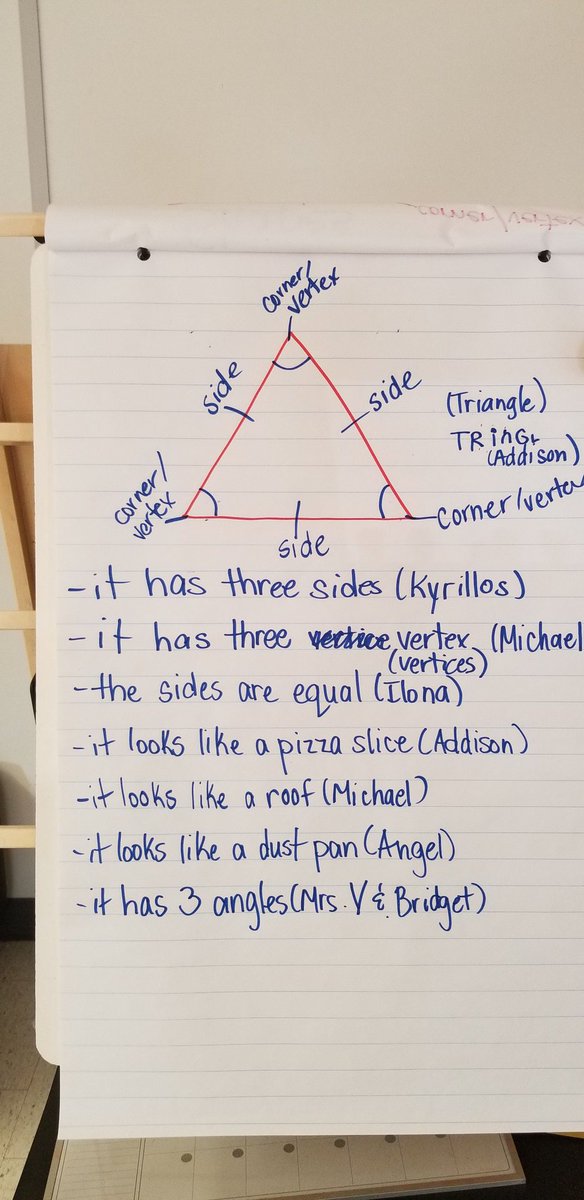 corner/vertex
corner/
vertex
side
side
(Triangle)
TRiNGL
(Addison)
corner/
vertex
corner/vertex
side
-it has three sides (Kyrillos)
-it has three vertice vertex (Michael
(vertices)
-the sides are equal (Ilona)
-it looks like a pizza slice (Addison)
-it looks like a roof (Michael)
-it looks like a dust pan (Angel)
-it has 3 angles (Mrs. V & Bridget)